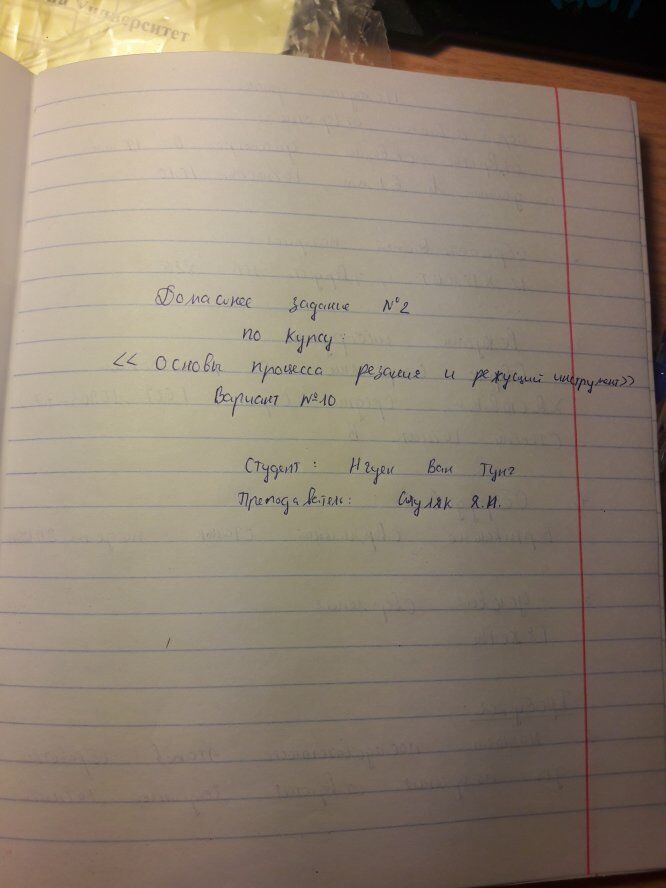 Университет
Домашнее задание №2
по курсу:
<< Основы процесса резание и режущий инструмент>>
Вариант №10
Студент: Нгуен Ван Тунг
Преподаватель: Я.И.